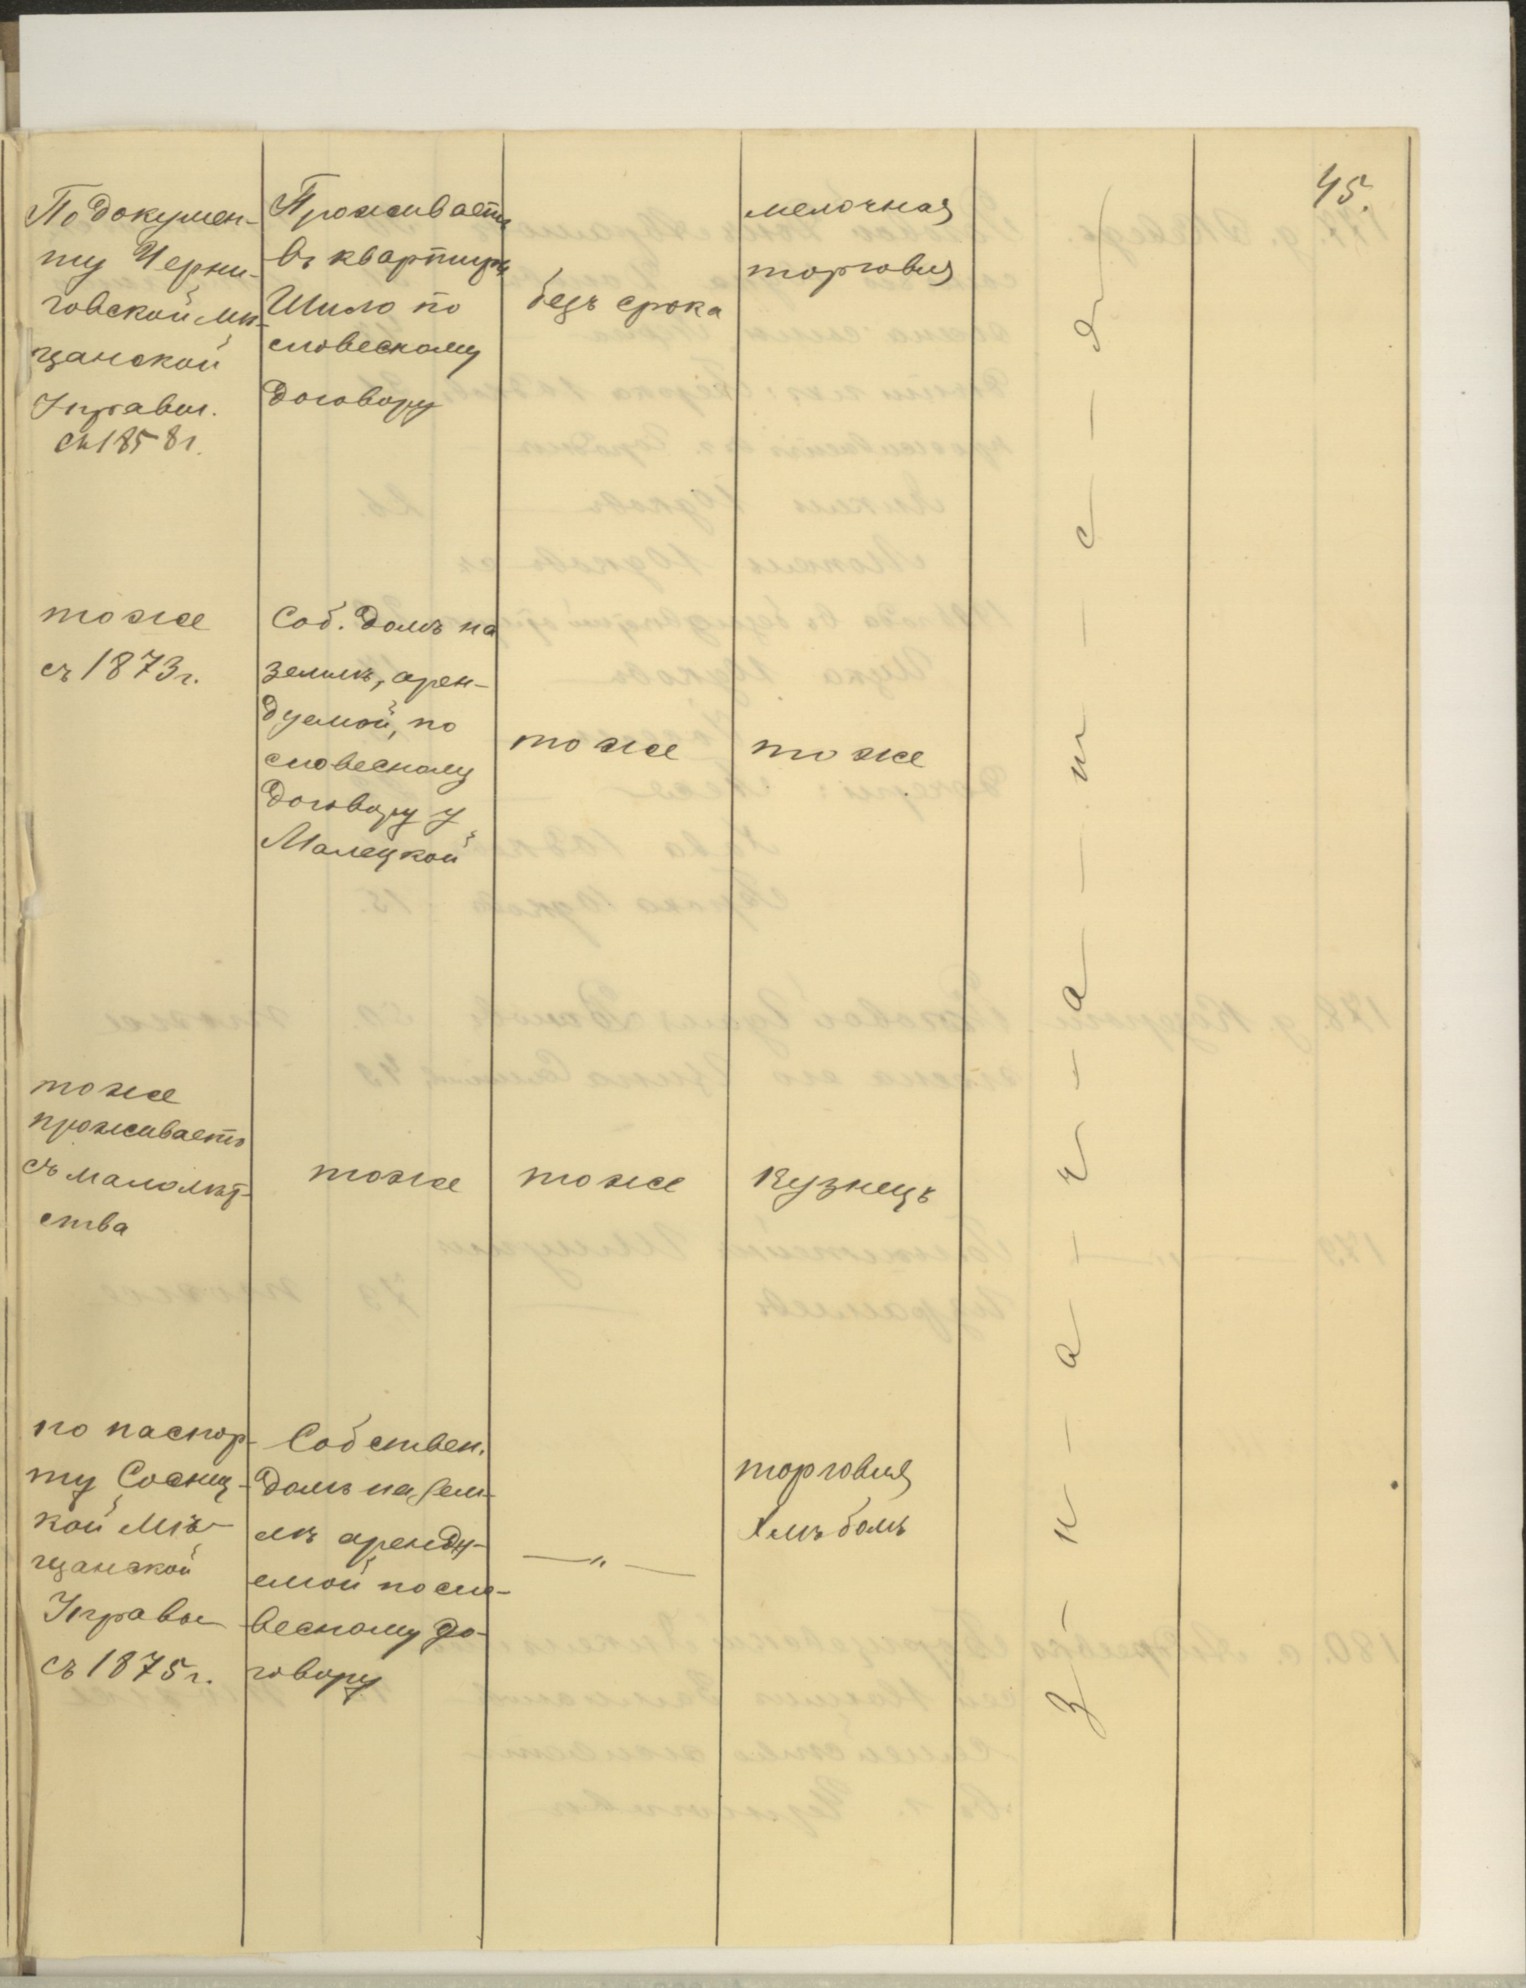 45.
По докумен-
ту Черни-
говской мѣ-
щанской
Управы.
съ 1858 г.
Проживаетъ
въ квартирѣ
Шило по
словесному
договору
безъ срока
мелочная
торговля
тоже
съ 1873 г.
Соб. домъ на
землѣ, арен-
дуемой, по
словесному
договору у
Малецкой
тоже
тоже
тоже
проживаетъ
съ малолѣт-
ства
тоже
тоже
Кузнецъ
по паспор-
ту Сосниц-
кой Мѣ-
щанской
Управы
съ 1875 г.
Собствен.
домъ на зем-
лѣ аренду-
емой по сло-
весному до-
говору
— " —
торговля
хлѣбомъ
З - н - а - ч - а - т - с - я